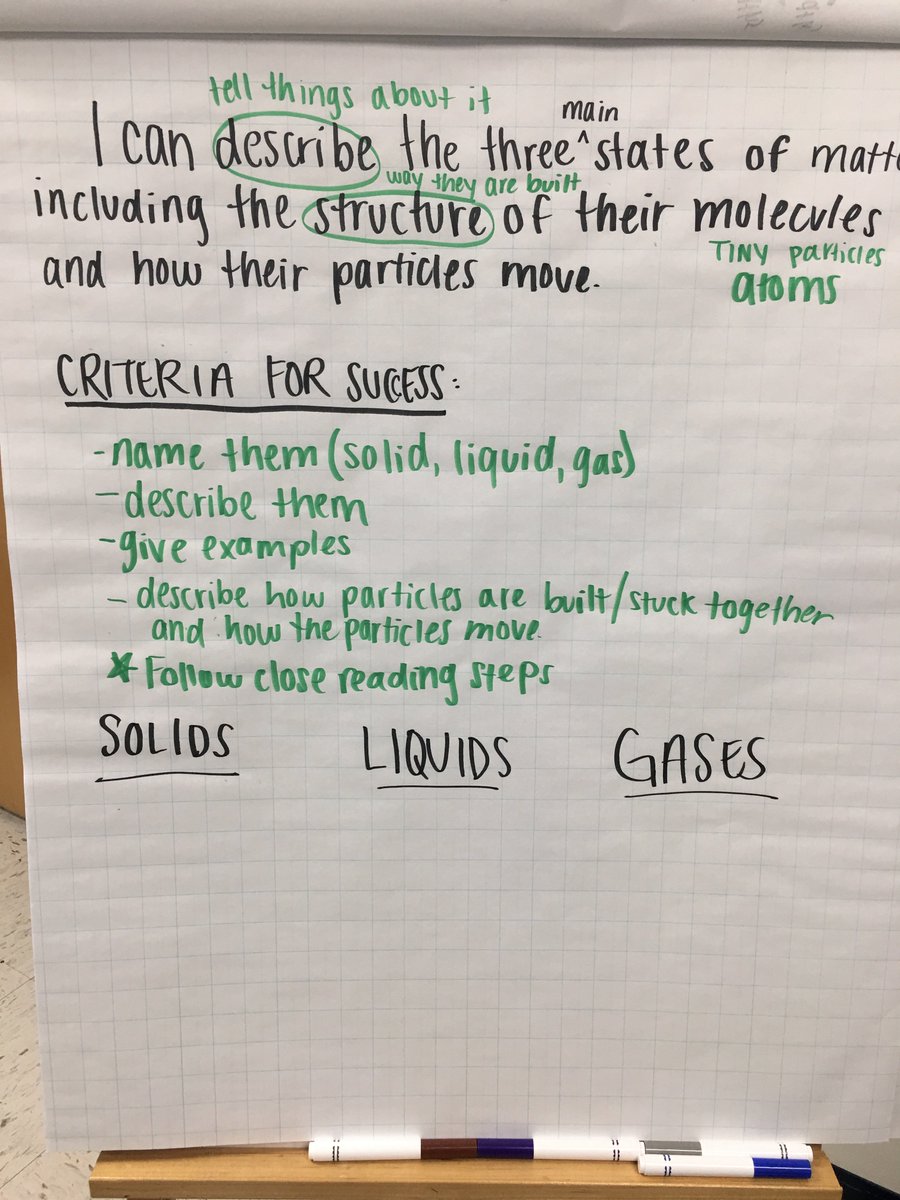 tell things about it
main
I can describe the three ^ states of matt
way they are built
including the structure of their molecules
TINY particles
and how their particles move.
atoms
CRITERIA FOR SUCCESS:
- name them (solid, liquid, gas)
- describe them
- give examples
- describe how particles are built/stuck together
and how the particles move.
* Follow close reading steps
SOLIDS LIQUIDS GASES